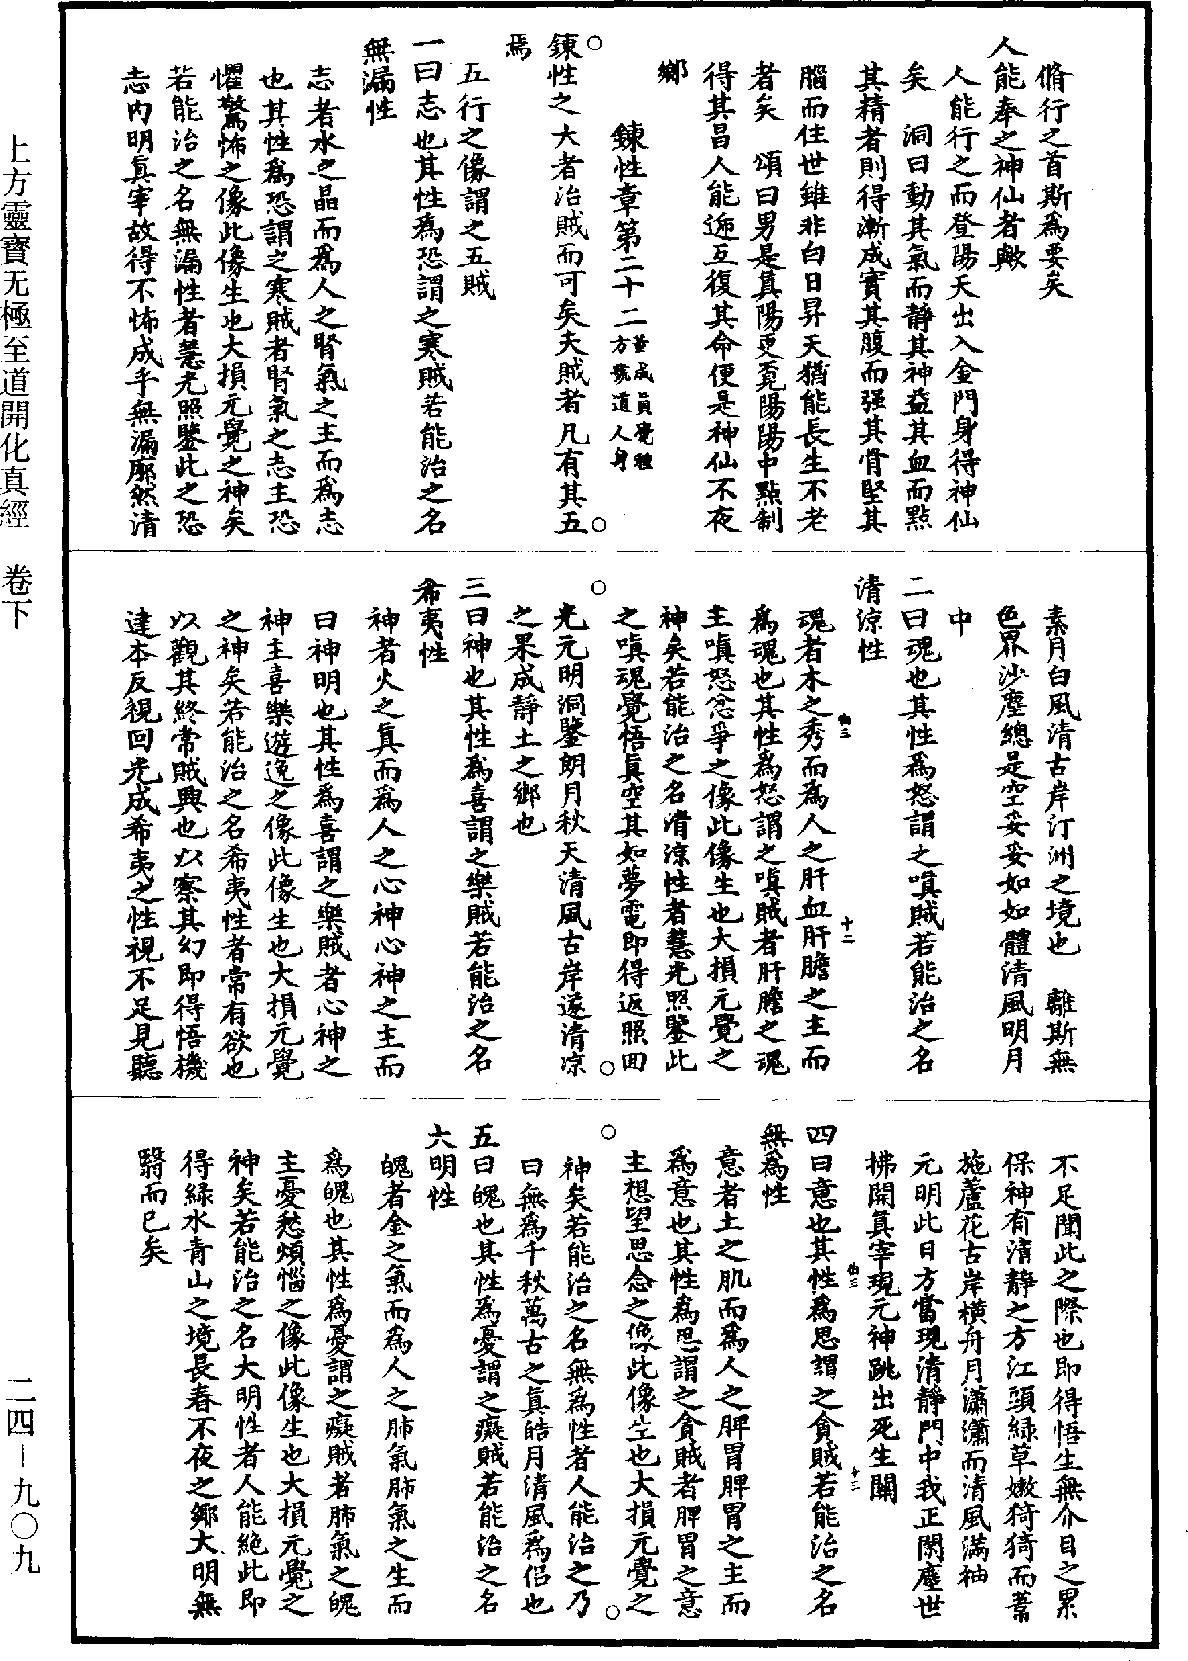 脩行之首斯爲要矣
人能奉之神仙者歟
人能行之而登陽天出入金門身得神仙
矣　洞曰動其氣而靜其神益其血而點
其精者則得漸成實其腹而强其骨堅其
腦而住世雖非白日昇天猶能長生不老
者矣　頌曰男是真陽更覓陽陽中點制
得其昌人能遞互復其命便是神仙不夜
鄉
鍊性章第二十二
○
鍊性之大者治賊而可矣夫賊者凡有其五
○
焉
五行之像謂之五賊
一曰志也其性爲恐謂之寒賊若能治之名
無漏性
志者水之晶而爲人之腎氣之主而爲志
也其性爲恐謂之寒賊者腎氣之志主恐
懼驚怖之像此像生也大損元覺之神矣
若能治之名無漏性者慧光照鑒此之恐
志內明真宰故得不怖成乎無漏廓然清
素月白風清古岸汀洲之境也　離斯無
色界沙塵總是空妥妥如如體清風明月
中
二曰魂也其性爲怒謂之嗔賊若能治之名
清涼性
魂者木之秀而爲人之肝血肝膽之主而
爲魂也其性爲怒謂之嗔賊者肝膽之魂
主嗔怒忿爭之像此像生也大損元覺之
神矣若能治之名清涼性者慧光照鑒此
之嗔魂覺悟真空其如夢電即得返照回
○
光元明洞鑒朗月秋天清風古岸遂清涼
○
之果成靜土之鄉也
三曰神也其性爲喜謂之樂賊若能治之名
希夷性
神者火之真而爲人之心神心神之主而
曰神明也其性爲喜謂之樂賊者心神之
神主喜樂遊逸之像此像生也大損元覺
之神矣若能治之名希夷性者常有欲也
以觀其終常賊興也以察其幻即得悟機
達本反視回光成希夷之性視不足見聽
不足聞此之際也即得悟生無介目之累
保神有清靜之方江頭綠草嫩猗猗而蓄
施蘆花古岸橫舟月瀟瀟而清風滿袖
元明此日方當現清靜門中我正閑塵世
拂開真宰現元神跳出死生關
四曰意也其性爲思謂之貪賊若能治之名
無爲性
意者土之肌而爲人之脾胃脾胃之主而
爲意也其性爲思謂之貪賊者脾胃之意
主想望思念之像此像生也大損元覺之
○
神矣若能治之名無爲性者人能治之乃
○
曰無爲千秋萬古之真皓月清風爲侶也
五曰魄也其性爲憂謂之癡賊若能治之名
大明性
魄者金之氣而爲人之肺氣肺氣之生而
爲魄也其性爲憂謂之癡賊者肺氣之魄
主憂愁煩惱之像此像生也大損元覺之
神矣若能治之名大明性者人能絶此即
得綠水青山之境長春不夜之鄉大明無
翳而已矣
上方靈寶无極至道開化真經　卷下
二四—九〇九